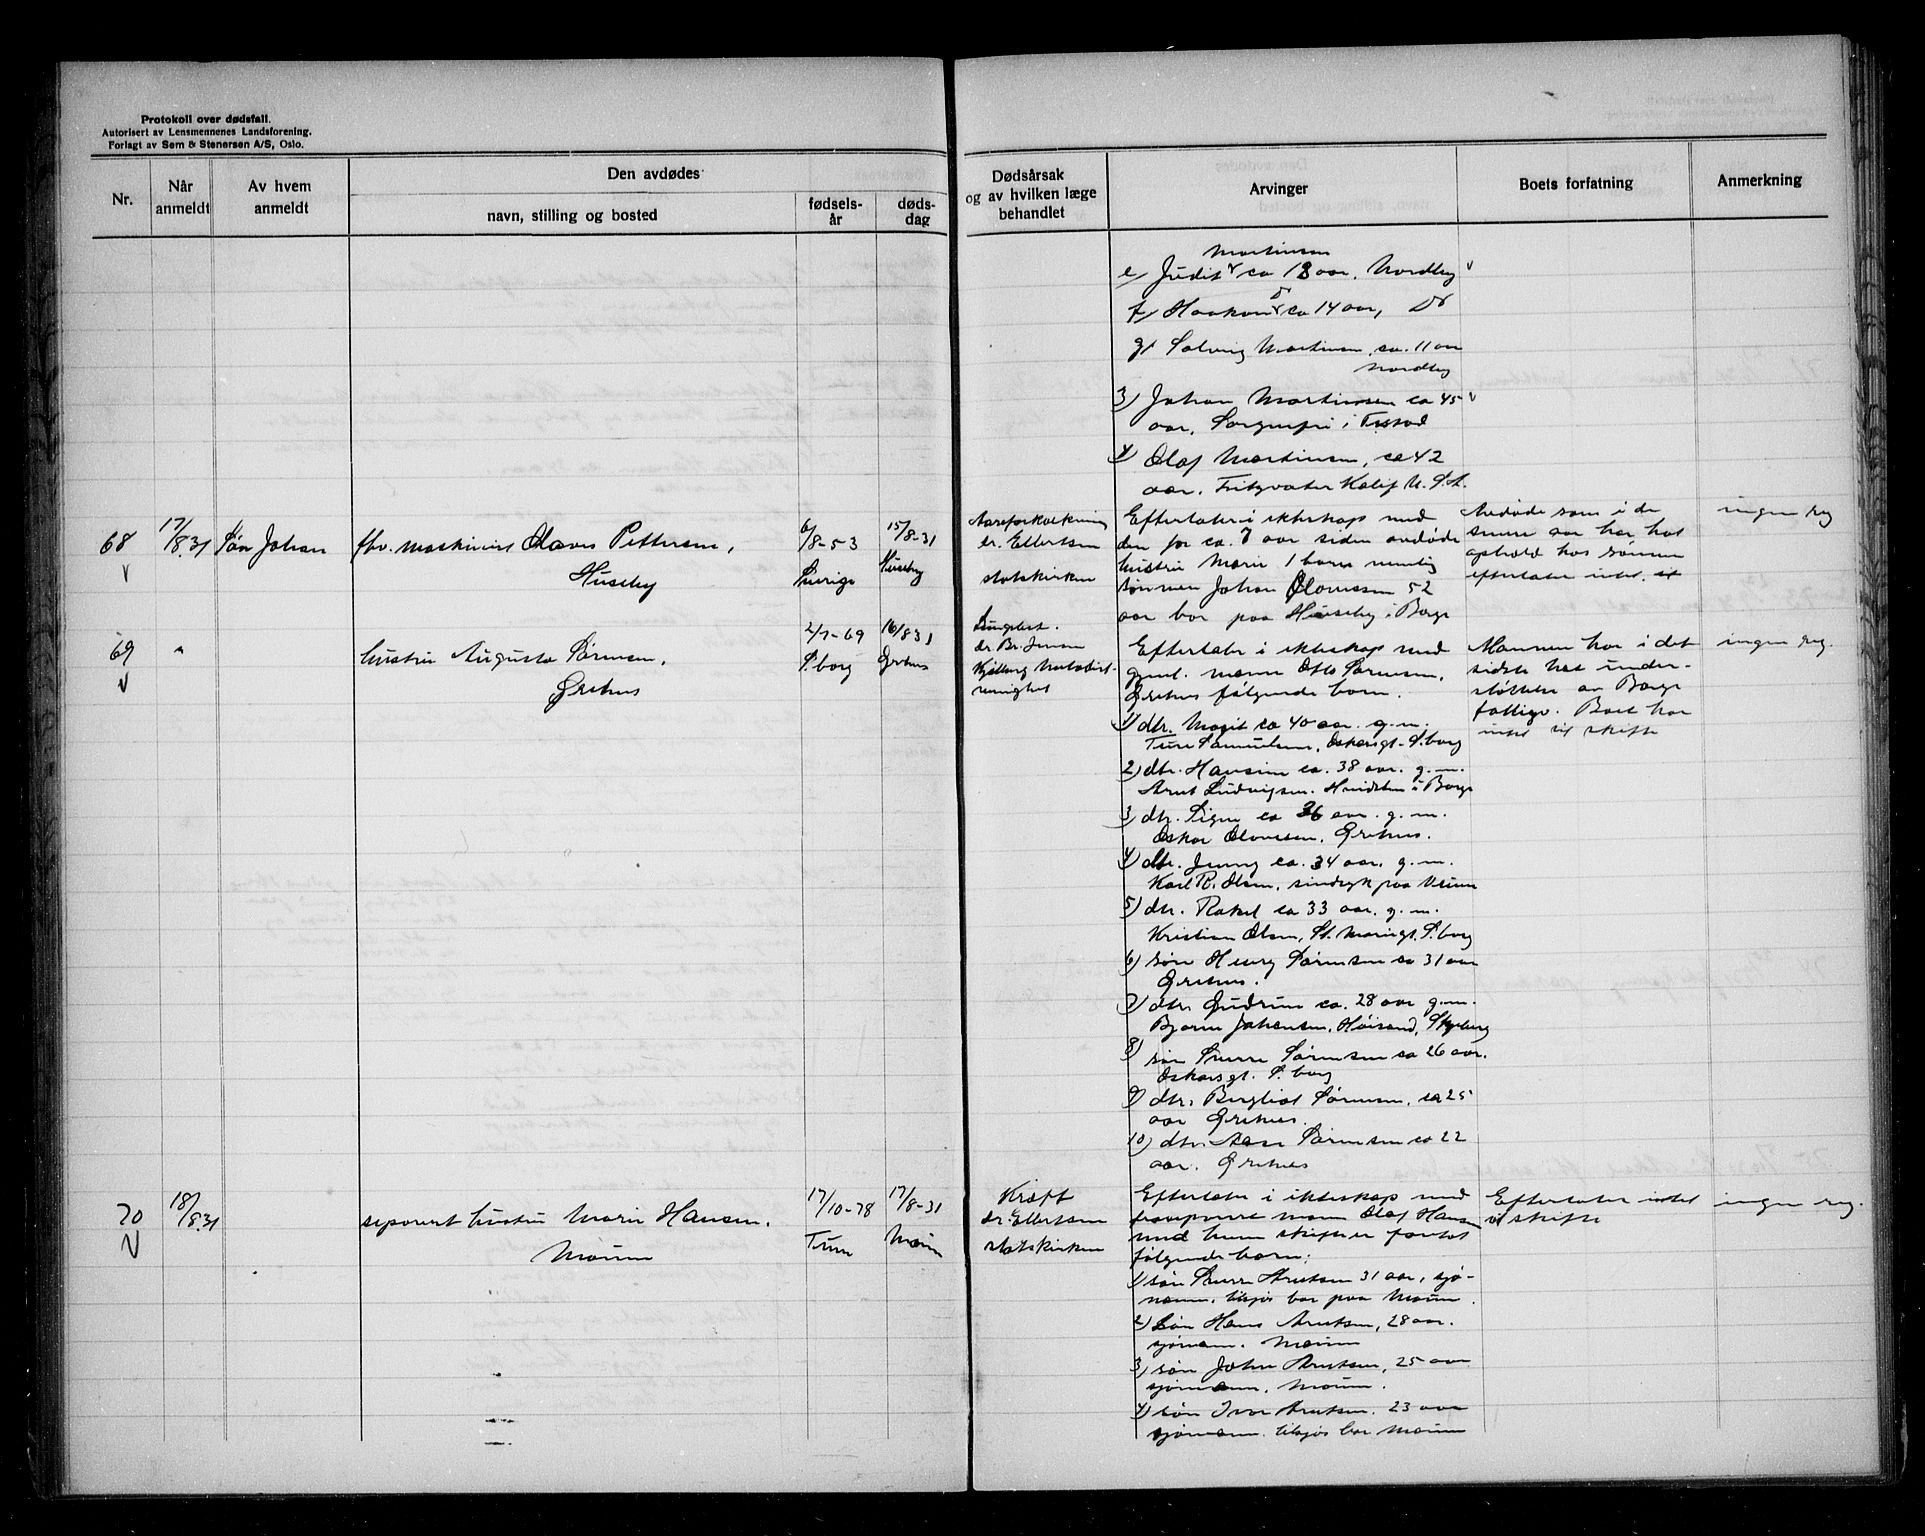 Protokoll over dødsfall.
Autorisert av Lensmennenes Landsforening.
Forlagt av Sem & Stenersen A/S, Oslo.
Nr.
Når anmeldt
Av hvem anmeldt
Den avdødes
navn, stilling og bosted
fødselsår
dødsdag
Dødsårsak
og av hvilken læge
behandlet
Arvinger
Boets forfatning
Anmerkning
Martinsen
e/ Judit ca 18 aar, Nordby
f/ Haakon ca 14 aar, Do
g/ Solveig Martinsen ca. 11 aar
Nordby
3) Johan Martinsen ca 45
aar, Sorgenfri i Tistad
4) Olaf Martinsen, ca 42
aar, Kalif U.S.A.
68
17/8.31
Søn Johan
fhv. maskinist Olaves Pettersen,
Huseby
6/8-53
Sverige
15/8-31
Huseby
Aareforkalkning
dr. Ellertsen
statskirken
Efterlater i ekteskap med
den for ca. 8 aar siden avdøde
hustru Marie 1 barn nemlig
sønnen Johan Olavessen 52
aar bor paa Huseby i Borge
Avdøde som i de
senere aar har hat
ophold hos sønnen
efterlater intet.
ingen reg
69
"
hustru Augusta Sørensen,
Grehus
2/7-69
S.borg
16/8 31
Grehus
dr. Br. Jensen
Efterlater i ekteskap med
gjenl. mann Otto Sørensen,
Grehus følgende barn.
1) dtr. Magit ca 40 aar. g.m.
Ture Samuelsen, Oskarsgt. S.borg
2) dtr. Hansine ca. 38 aar. g.m.
Arnt Ludvigsen. Hvidsten i Borge
3) dtr. Signe ca 36 aar. g.m.
Oskar Olavessen, Grehus.
4) dtr. Jenny ca. 34 aar. g.m.
Karl R. Olsen, sindsyk paa Veum
5) dtr. Rakel ca 33 aar. g.m.
Kristian Olsen, St. Mariegt. S.borg
6) søn Henry Sørensen ca 31 aar
Grehus.
7) dtr. Gudrun ca. 28 aar g.m.
Bjarne Johansen, Høisand, Skjeberg
8) søn Sverre Sørensen ca 26 aar.
Oskarsgt. S.borg
9) dtr. Bergliot Sørensen, ca 25
aar Grehus.
10) dtr. Aase Sørensen ca 22
aar. Grehus
Mannen har i det
sidste hat under-
støttelse av Borge
fattigv. Boet har
intet til skifte
ingen reg.
70
18/8.31
separert hustru Marie Hansen.
Moum
17/10-78
Tune
17/8-31
Moum
Kræft
dr. Ellertsen
statskirken
Efterlater i ekteskap med
fraseparerte mann Olaf Hansen
med hvem skifte er foretat
følgende barn:
1) søn Sverre Arntsen 31 aar, sjø-
mann, tilsjøs bor paa Moum.
2) Søn Hans Arntsen, 28 aar.
sjømann. Moum
3) søn John Arntsen, 25 aar
sjømann, Moum.
4) søn Ivar Arntsen. 23 aar
sjømann. tilsjøs bor Moum
Efterlater intet
til skifte
ingen reg.